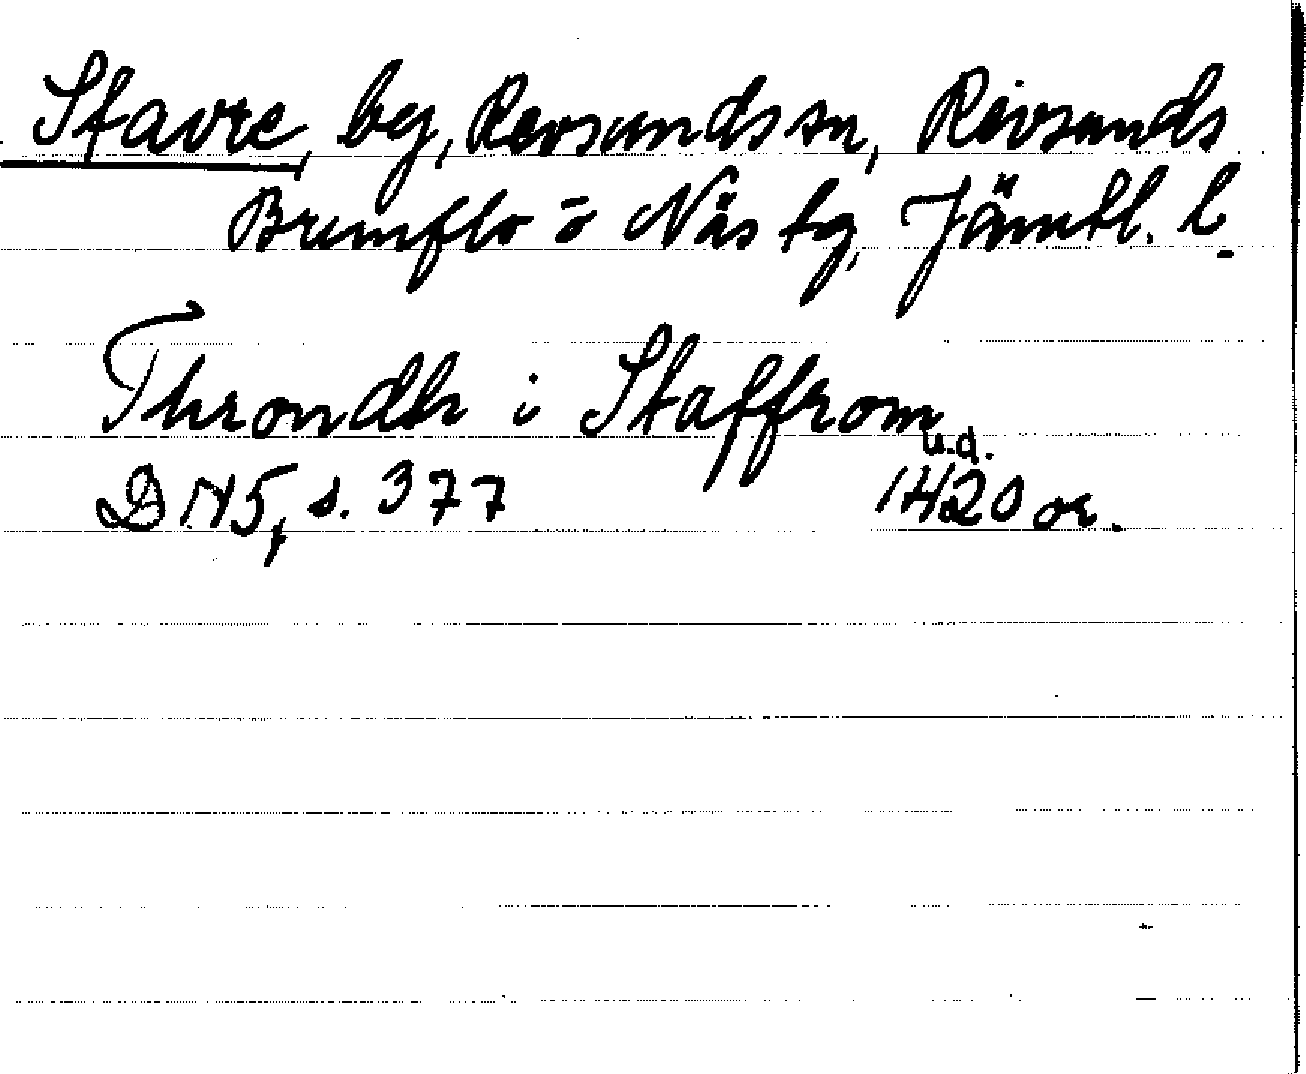 Stavre, by, Revsunds sn, Revsunds
Brunflo o Näs tg, Jämtl. l.
Throndh i Staffrom
u.d.
DN 5, s. 377 1420 or.